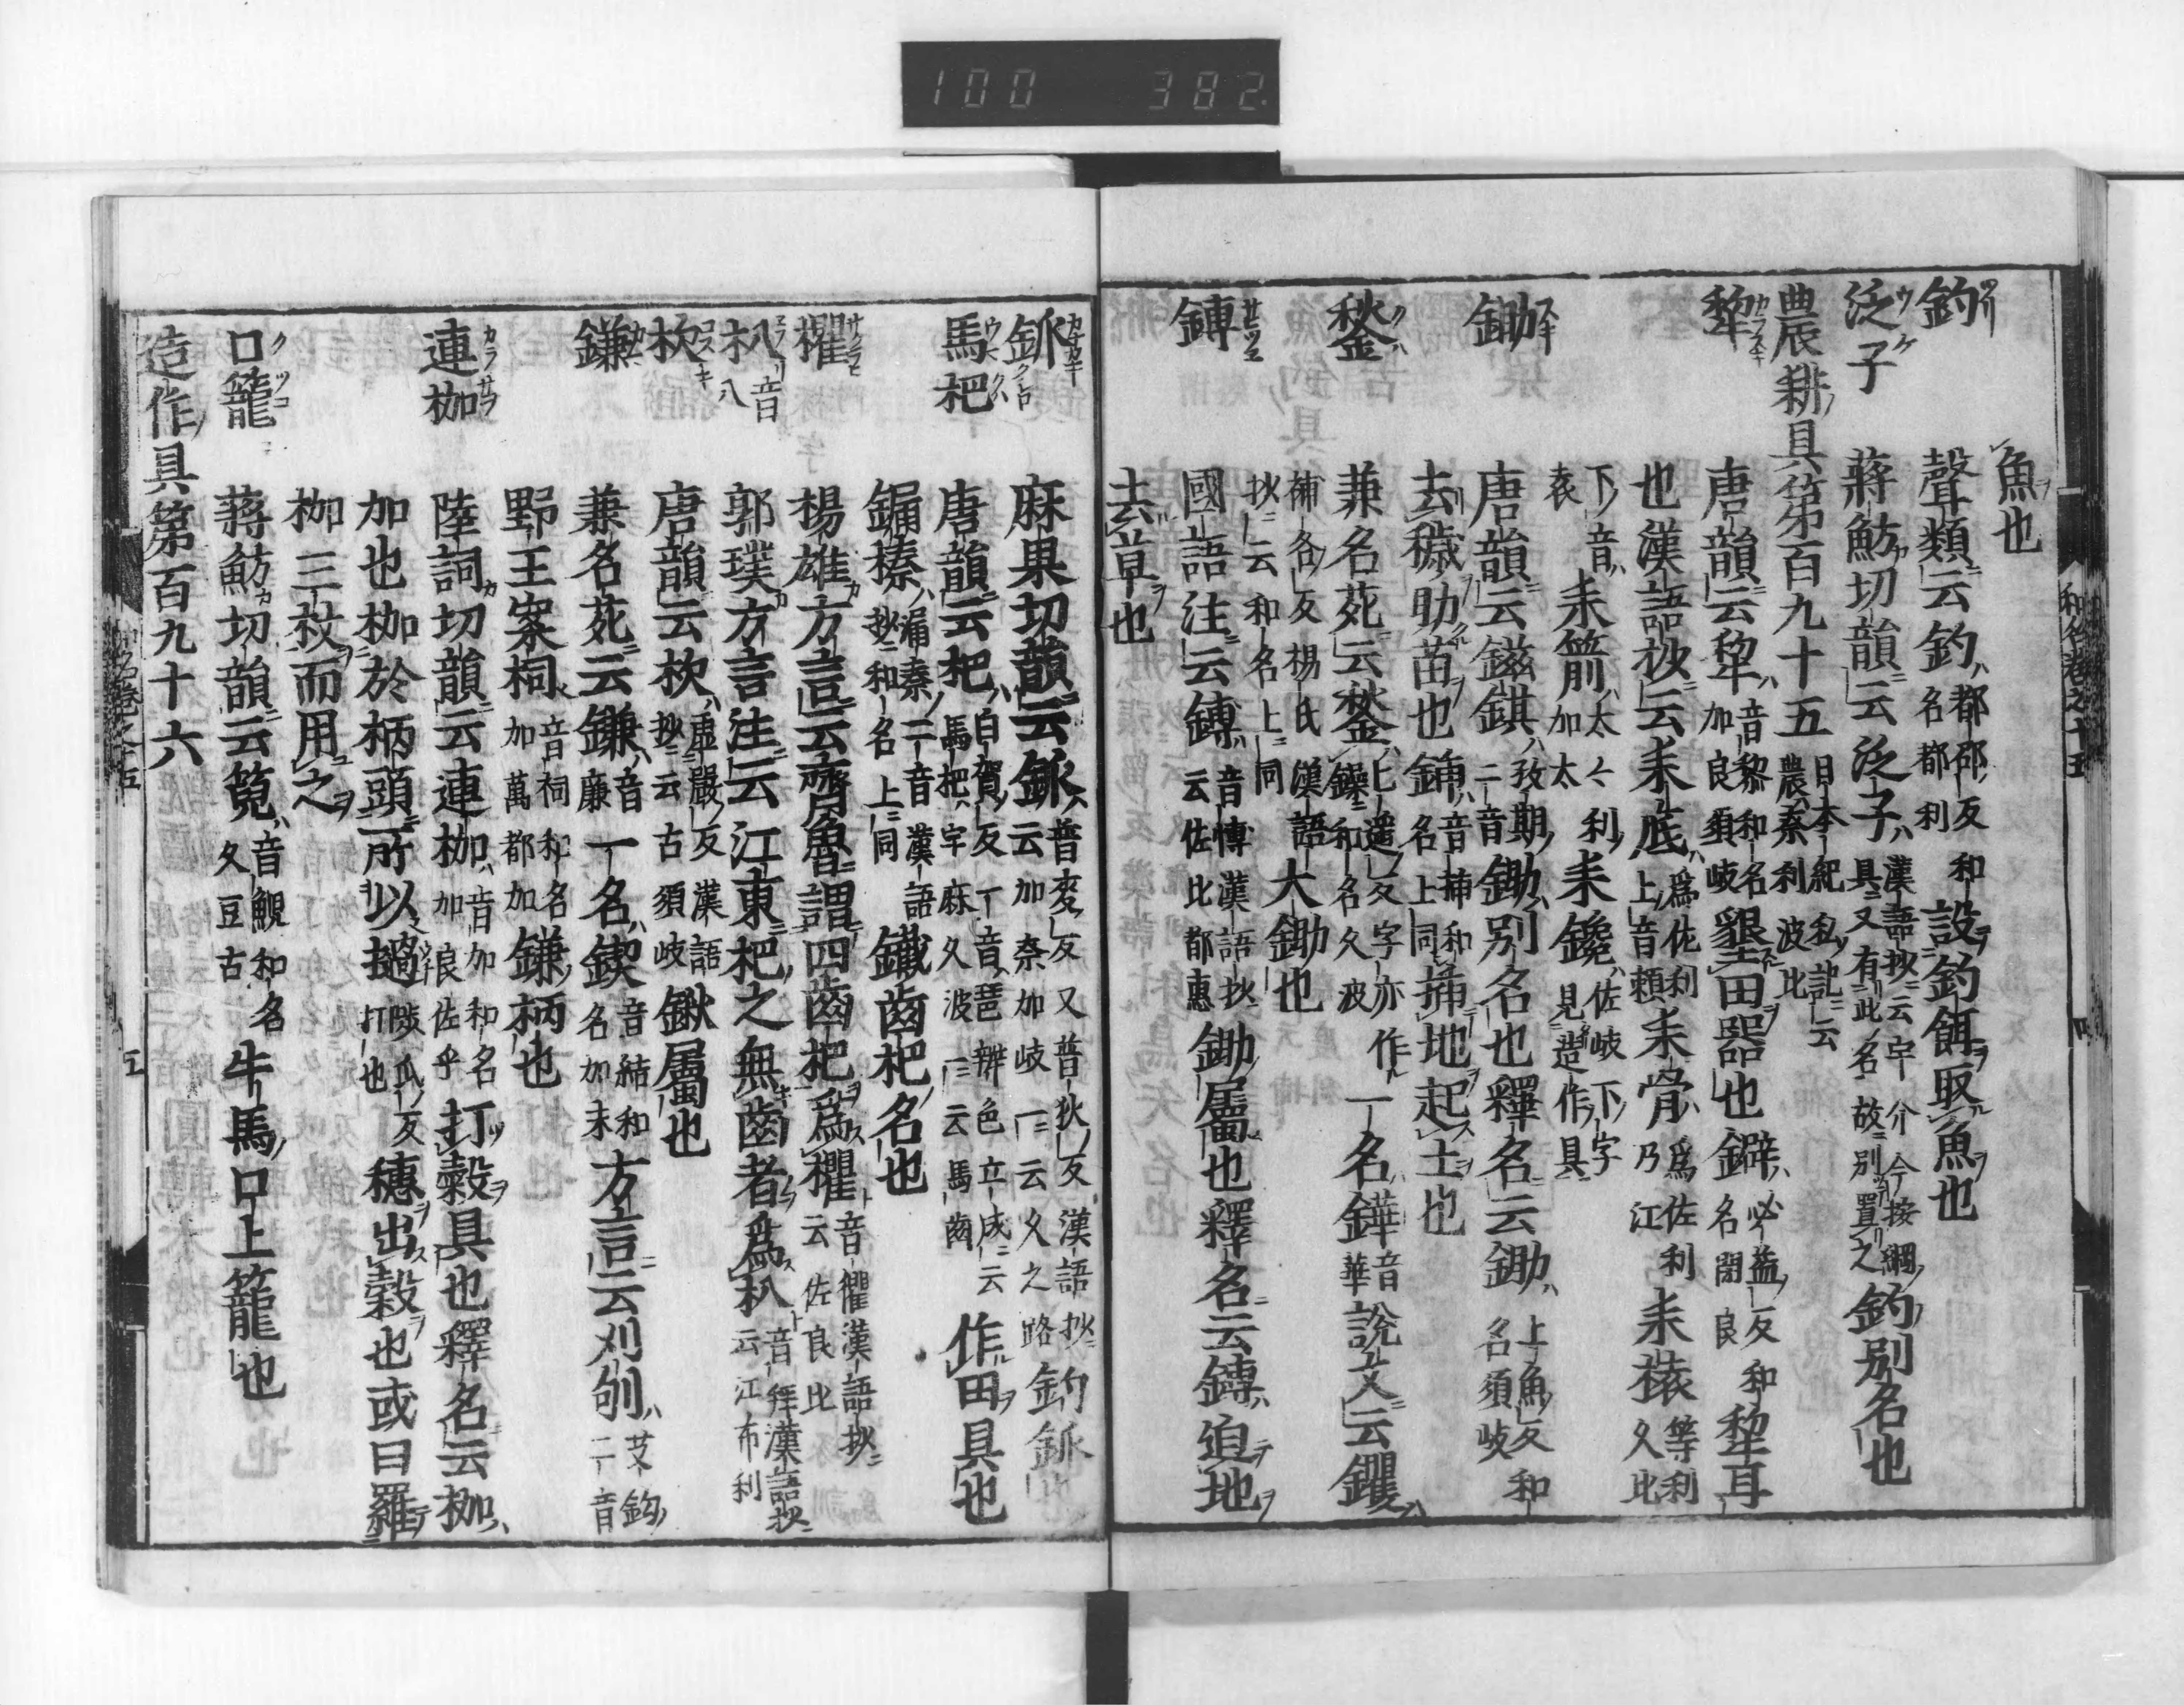 100 382.
魚也
釣 聲類云釣都邵反和名都利設釣餌取魚也
泛子 蔣魴切韻云泛子漢語抄云宇介今按網具又有此名故別置之釣別名也
農耕具第百九十五日本紀私記云農奈利波比
犂 唐韻云犂音黎和名加良須岐墾田器也鐴必益反和名閇良犂耳
也漢語抄云耒底爲佐利上音頼耒骨爲佐利乃江耒𣖔等利久比
下音耒箭太々利加太耒鑱佐岐下字見造作具
鋤 唐韻云鎡錤孜期二音鋤別名也釋名云鋤上魚反和名須岐
去穢助苗也鋪音捕和名上同捕地起土也
鍫 兼名苑云鍫七遙反字亦作鐰和名久波一名鏵音華說文云钁
補各反楊氏漢語抄云和名上同大鋤也
鎛 國語注云鎛音博漢語抄云佐比都惠鋤屬也釋名云鎛迫地
去草也
和名卷之十五 四
釽 麻果切韻云釽普麥反又普狄反漢語抄云加奈加岐一云久之路釣釽也
馬杷 唐韻云杷白賀反一音琶辨色立成云馬杷宇麻久波一云馬齒作田具也
鏞榛漏秦二音漢語抄和名上同鐵齒杷名也
欋 楊雄方言云齊魯謂四齒杷爲欋音衢漢語抄云佐良比
朳音八 郭璞方言注云江東杷之無齒者爲朳音拜漢語抄云江布利
杴 唐韻云杴虛嚴反漢語抄云古須岐鍬屬也
鎌 兼名苑云鎌音廉一名鍥音結和名加末方言云刈刎艾鈎二音
野王案柌音祠和名加萬都加鎌柄也
連枷 陸詞切韻云連枷音加和名加良佐乎打穀具也釋名云枷
加也枷於柄頭所以撾陟瓜反打也穗出穀也或曰羅
枷三杖而用之
口籠 蔣魴切韻云筧音覯和名久豆古牛馬口上籠也
造作具第百九十六
和名卷之十五 五